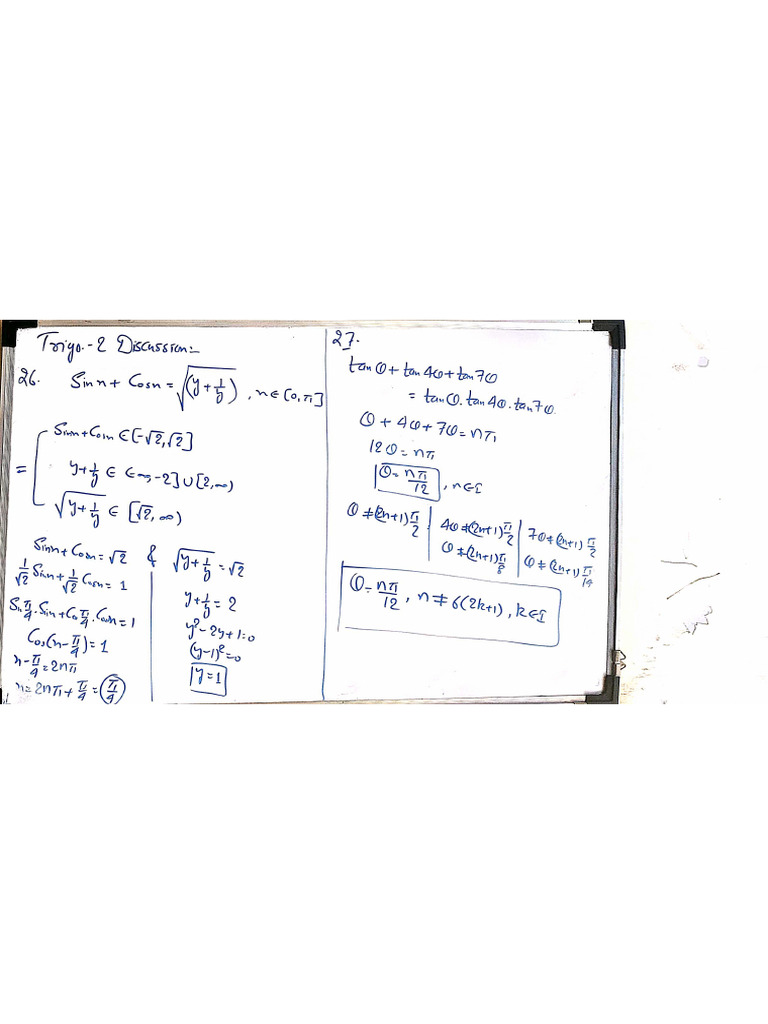 Trigo.-2 Discussion:-
26. Sinx + Cosx = √(y + 1/y) , x ∈ [0, π]
Sinx + Cosx ∈ [-√2, √2]
= y + 1/y ∈ (-∞, -2] ∪ [2, ∞)
√(y + 1/y) ∈ [√2, ∞)
Sinx + Cosx = √2 & √(y + 1/y) = √2
1/√2 Sinx + 1/√2 Cosx = 1
Sin π/4 . Sinx + Cos π/4 . Cosx = 1
Cos(x - π/4) = 1
x - π/4 = 2nπ
x = 2nπ + π/4 = π/4
y + 1/y = 2
y² - 2y + 1 = 0
(y-1)² = 0
y = 1
27.
tanθ + tan4θ + tan7θ
= tanθ. tan4θ. tan7θ.
θ + 4θ + 7θ = nπ
12θ = nπ
θ = nπ/12 , n ∈ I
θ ≠ (2n+1)π/2 | 4θ ≠ (2n+1)π/2 | 7θ ≠ (2n+1)π/2
θ ≠ (2n+1)π/8 | θ ≠ (2n+1)π/14
θ = nπ/12 , n ≠ 6(2k+1) , k ∈ I